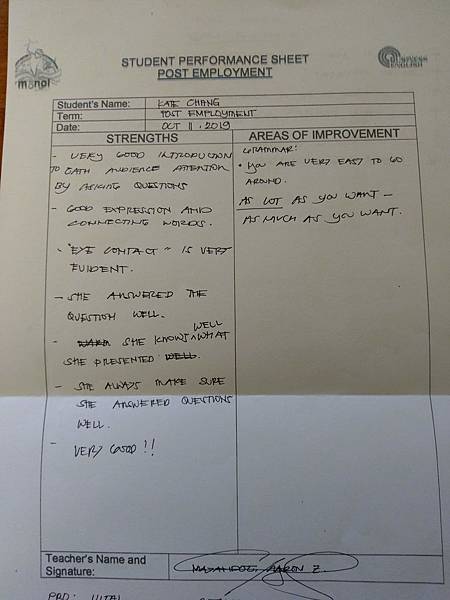 monol
STUDENT PERFORMANCE SHEET
BUSINESS ENGLISH
POST EMPLOYMENT
Student's Name: KATE CHANG
Term: POST EMPLOYMENT
Date: OCT 11, 2019
STRENGTHS
- VERY GOOD INTRODUCTION
TO CATH AUDIENCE ATTENTION
BY ASKING QUESTIONS
- GOOD EXPRESSION AND
CONNECTING WORDS.
- "EYE CONTACT" IS VERY
EVIDENT.
- SHE ANSWERED THE
QUESTION WELL.
WELL
- SHE KNOWS ^ WHAT
SHE PRESENTED WELL.
- SHE ALWAYS MAKE SURE
SHE ANSWERED QUESTIONS
WELL.
- VERY GOOD!!
AREAS OF IMPROVEMENT
GRAMMAR:
• YOU ARE VERY EASY TO GO
AROUND.
AS LOT AS YOU WANT –
AS MUCH AS YOU WANT.
Teacher's Name and
Signature:
AARON Z.
PRO: VITAL